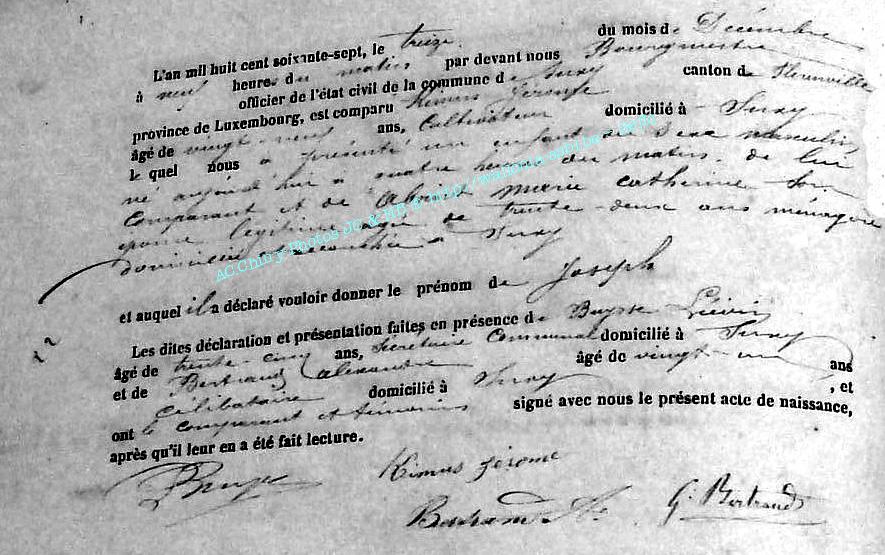 L'an mil huit cent soixante-sept, le treize du mois de Décembre
à neuf heures du matin par devant nous Bourgmestre
officier de l'état civil de la commune de Juzy canton de
province de Luxembourg, est comparu Kimus Jérome
âgé de vingt-neuf ans, Cultivateur domicilié à Juzy
lequel nous a présenté un enfant de Sexe masculin
né aujourd'hui à quatre heures du matin de lui
comparant et de marie catherine son
épouse légitime âgée de trente deux ans ménagère
domiciliée à Juzy
et auquel il a déclaré vouloir donner le prénom de Joseph
Les dites déclaration et présentation faites en présence de Buysse Liévin
âgé de trente-cinq ans, Secrétaire Communal domicilié à Juzy
et de Bertrand alexandre âgé de vingt-un ans
célibataire domicilié à Juzy , et
ont le comparant et témoins signé avec nous le présent acte de naissance,
après qu'il leur en a été fait lecture.
Kimus Jérome
Bertrand A. G. Bertrand
AC.Chiny Photos JC & HE